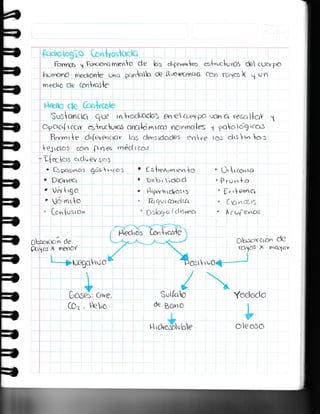 Radiología Contrastada
Formas y Funcionamiento de las diferentes estructuras del cuerpo
humano mediante una pantalla de fluoroscopia con rayos X y un
medio de contraste
Medio de Contraste
Sustancia que introducidos en el cuerpo van a resaltar y
opacificar estructuras anatómicas normales y patológicas
Permite diferenciar las densidades entre los distintos
tejidos con fines médicos
- Efectos adversos
• Espasmos gástricos • Estreñimiento • Urticaria
• Diarrea • Debilidad • Prurito
• Vértigo • Hiperhidrosis • Eritema
• Vómito • Taquicardia • Cianosis
• Confusión • Disfagia / disnea • Acufenos
Medios Contraste
Absorción de
Rayos X menor
Absorción de
rayos X mayor
Negativo Positivo
Gases: Aire,
CO2, Helio
Sulfato
de Bario
Yodado
Hidrosoluble Oleoso